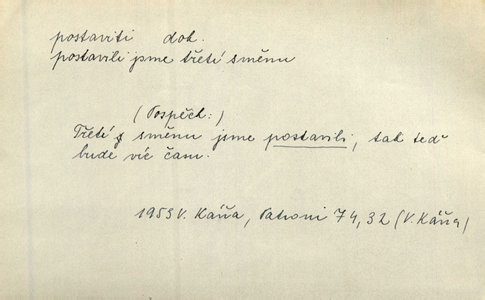 postaviti dok.
postavili jsme třetí směnu
(Pospěch:)
Třetí směnu jsme postavili, tak teď
bude víc času.
1953 V. Káňa, Patroni 74, 32 (V. Káňa)